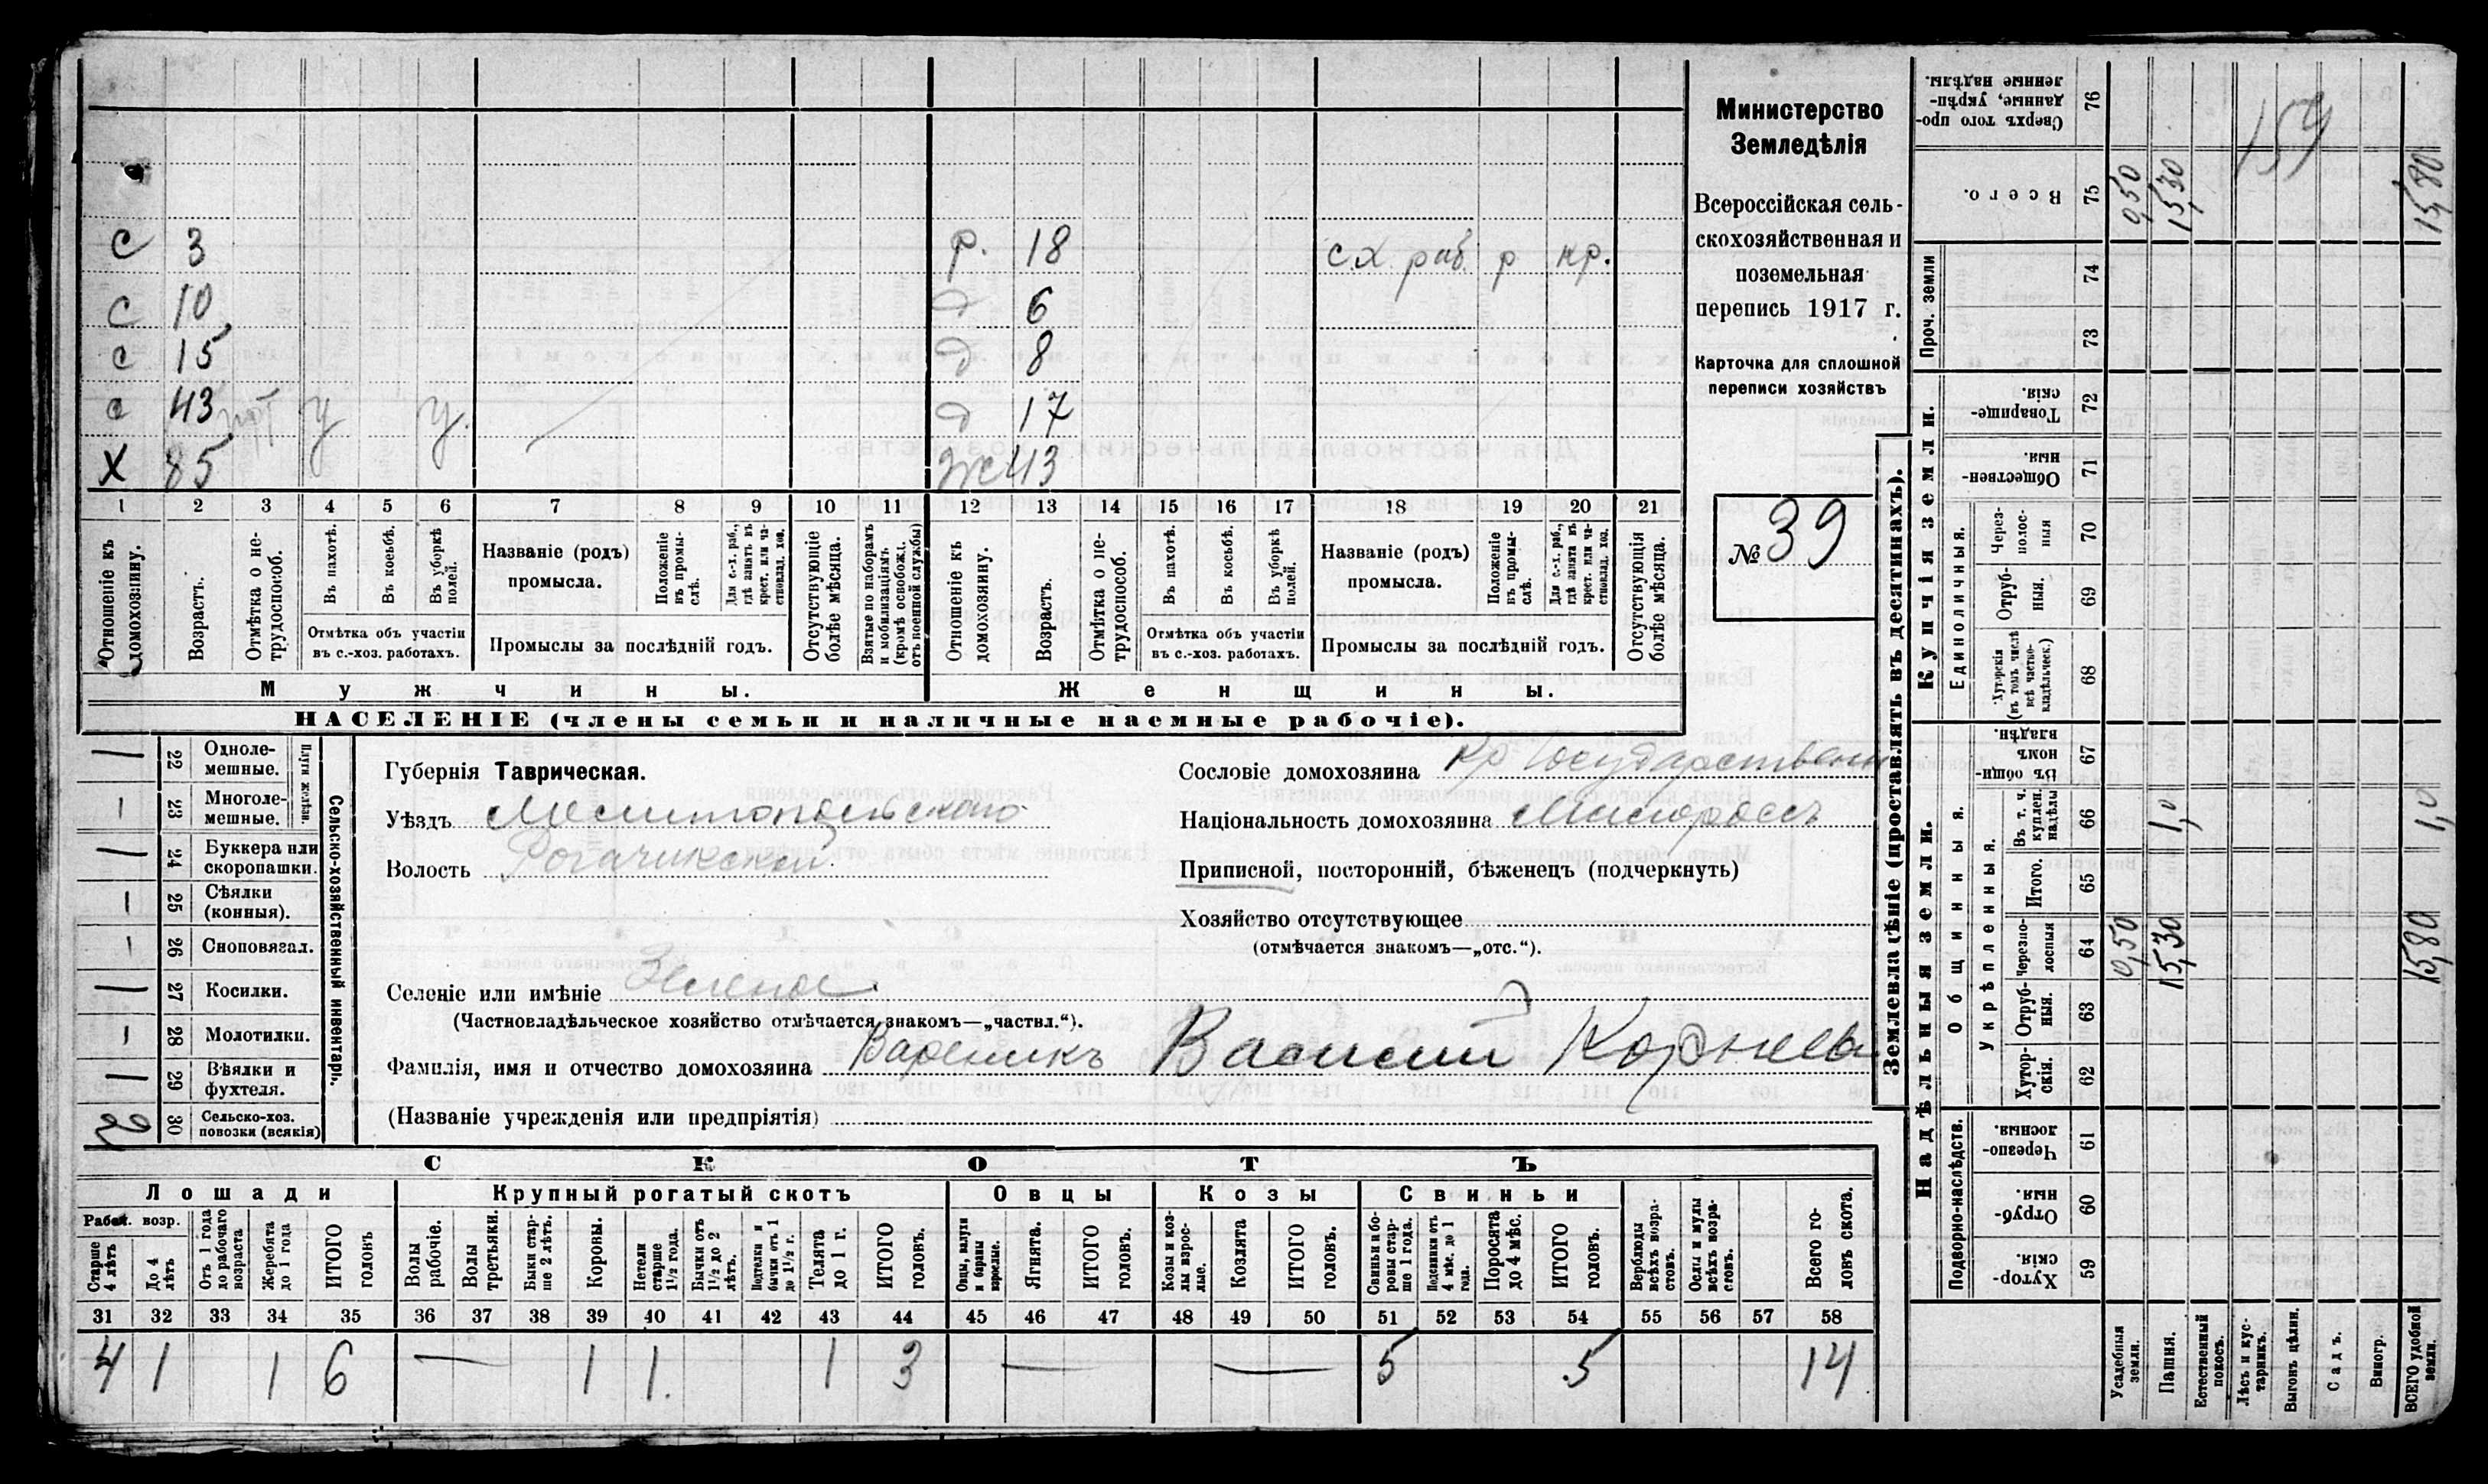 С 3 р. 18 с.х. раб. р кр.
С 10 д 6
с 15 д 8
с 43 у у. д 17
Х 85 ж 43
1 2 3 4 5 6 7 8 9 10 11 12 13 14 15 16 17 18 19 20 21
Отношеніе къ домохозяину.
Возрастъ.
Отмѣтка о не-трудоспособ.
Въ пахотѣ.
Въ косьбѣ.
Въ уборкѣ полей.
Отмѣтка объ участіи
въ с.-хоз. работахъ.
Названіе (родъ)
промысла.
Положеніе въ промы-слѣ.
Для с.-х. раб., гдѣ занятъ въ крест. или ча-стновлад. хоз.
Промыслы за послѣдній годъ.
Отсутствующіе болѣе мѣсяца.
Взятые по наборамъ и мобилизаціямъ (кромѣ освобожд. отъ военной службы)
Отношеніе къ домохозяину.
Возрастъ.
Отмѣтка о не-трудоспособ.
Въ пахотѣ.
Въ косьбѣ.
Въ уборкѣ полей.
Отмѣтка объ участіи
въ с.-хоз. работахъ.
Названіе (родъ)
промысла.
Положеніе въ промы-слѣ.
Для с.-х. раб., гдѣ занята въ крест. или ча-стновлад. хоз.
Промыслы за послѣдній годъ.
Отсутствующія болѣе мѣсяца.
Мужчины. Женщины.
НАСЕЛЕНІЕ (члены семьи и наличные наемные рабочіе).
Министерство
Земледѣлія
Всероссійская сель-
скохозяйственная и
поземельная
перепись 1917 г.
Карточка для сплошной
переписи хозяйствъ
№ 39
Сельско-хозяйственный инвентарь.
Плуги желѣзн.
— 22 Одноле-мешные.
— 23 Многоле-мешные.
— 24 Буккера или скоропашки.
— 25 Сѣялки (конныя).
— 26 Сноповязал.
— 27 Косилки.
— 28 Молотилки.
— 29 Вѣялки и фухтеля.
2 30 Сельско-хоз. повозки (всякія)
Губернія Таврическая.
Уѣздъ Мелитопольскаго
Волость Рогачикской
Сословіе домохозяина кр Государствен
Національность домохозяина Малороссъ
Приписной, посторонній, бѣженецъ (подчеркнуть)
Хозяйство отсутствующее
(отмѣчается знакомъ—„отс.“).
Селеніе или имѣніе Зеленое
(Частновладѣльческое хозяйство отмѣчается знакомъ—„частвл.“).
Фамилія, имя и отчество домохозяина Вареникъ Василий Корнеев
(Названіе учрежденія или предпріятія)
СКОТЪ
Лошади Крупный рогатый скотъ Овцы Козы Свиньи
Рабоч. возр.
Старше 4 лѣтъ
До 4 лѣтъ
Отъ 1 года до рабочаго возраста
Жеребята до 1 года
ИТОГО головъ
Волы рабочіе.
Волы третьяки.
Быки стар-ше 2 лѣтъ.
Коровы.
Нетели старше 1½ года.
Бычки отъ 1½ до 2 лѣтъ.
Подтелки и бычки отъ 1 до 1½ г.
Телята до 1 г.
ИТОГО головъ.
Овцы, валухи и бараны взрослые.
Ягнята.
ИТОГО головъ.
Козы и коз-лы взрос-лые.
Козлята
ИТОГО головъ.
Свиньи и бо-ровы стар-ше 1 года.
Подсвинки отъ 4 мѣс. до 1 года.
Поросята до 4 мѣс.
ИТОГО головъ.
Верблюды всѣхъ возра-стовъ.
Ослы и мулы всѣхъ возра-стовъ.
Всего го-ловъ скота.
31 32 33 34 35 36 37 38 39 40 41 42 43 44 45 46 47 48 49 50 51 52 53 54 55 56 57 58
4 1 1 6 — 1 1. 1 3 — — 5 5 14
Землевладѣніе (проставлять въ десятинахъ).
Купчія земли.
Надѣльныя земли.
Сверхъ того про-данные, укрѣп-ленные надѣлы. 76
Всего. 75 0,50 15,30 15,80
159
Проч. земли
74
73
Товарище-скія. 72
Обществен-ныя. 71
Единоличныя.
Через-полос-ныя 70
Отруб-ныя. 69
Хуторскія (въ томъ числѣ всѣ частно-владѣльческ.) 68
Общинныя.
Въ общин-номъ владѣн. 67
Укрѣпленныя.
Въ т. ч. куплен. надѣлы 66 1,0 1,0
Итого. 65
Черезпо-лосныя 64 0,50 15,30 15,80
Отруб-ныя. 63
Хутор-скія. 62
Подворно-наслѣдств.
Черезпо-лосныя. 61
Отруб-ныя. 60
Хутор-скія. 59
Усадебныя земли.
Пашня.
Естественный покосъ.
Лѣсъ и кус-тарникъ.
Выгонъ цѣлин.
Садъ.
Виногр.
ВСЕГО удобной земли.